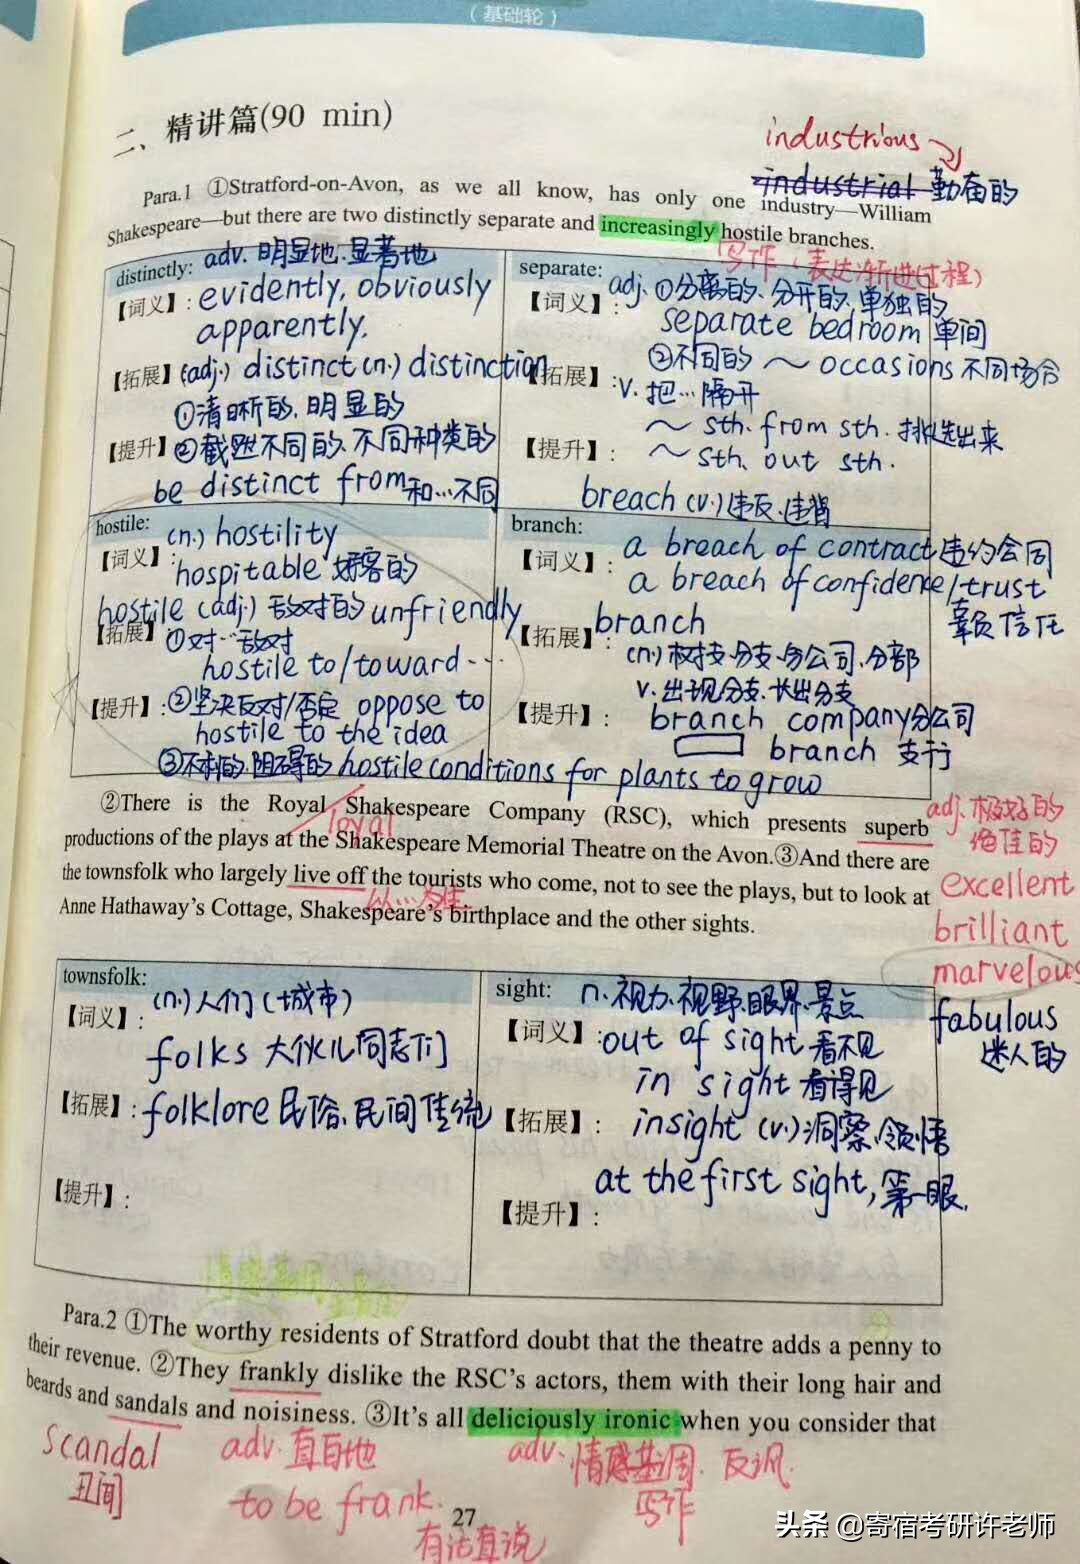 (基础轮)
二、精讲篇(90 min)
industrious
industrial 勤奋的
Para.1 ①Stratford-on-Avon, as we all know, has only one industry—William
Shakespeare—but there are two distinctly separate and increasingly hostile branches.
写作(表达渐进过程)
distinctly: adv. 明显地.显著地
【词义】: evidently, obviously
apparently.
【拓展】(adj.) distinct (n.) distinction
①清晰的.明显的
【提升】②截然不同的.不同种类的
be distinct from 和…不同
separate: adj. ①分离的.分开的.单独的
【词义】: separate bedroom 单间
②不同的 ~ occasions 不同场合
【拓展】: v. 把…隔开
~ sth. from sth. 挑选出来
【提升】: ~ sth. out sth.
breach (v.) 违反.违背
hostile: (n.) hostility
【词义】: hospitable 好客的
hostile (adj.) 敌对的 unfriendly
【拓展】①对…敌对
hostile to/toward…
【提升】: ②坚决反对/否定 oppose to
hostile to the idea
③不利的.阻碍的 hostile conditions for plants to grow
branch: a breach of contract 违约合同
【词义】: a breach of confidence/trust
辜负信任
【拓展】: branch
(n.) 树枝.分支.分公司.分部
v. 出现分支.长出分支
【提升】: branch company 分公司
branch 支行
②There is the Royal Shakespeare Company (RSC), which presents superb
loyal
productions of the plays at the Shakespeare Memorial Theatre on the Avon.③And there are
the townsfolk who largely live off the tourists who come, not to see the plays, but to look at
以…为生
Anne Hathaway's Cottage, Shakespeare's birthplace and the other sights.
adj. 极好的
绝佳的
excellent
brilliant
marvelous
fabulous
迷人的
townsfolk: (n.) 人们(城市)
【词义】:
folks 大伙儿 同志们
【拓展】: folklore 民俗.民间传统
【提升】:
sight: n. 视力.视野.眼界.景点
【词义】: out of sight 看不见
in sight 看得见
【拓展】: insight (v.) 洞察.领悟
at the first sight, 第一眼.
【提升】:
Para.2 ①The worthy residents of Stratford doubt that the theatre adds a penny to
their revenue. ②They frankly dislike the RSC's actors, them with their long hair and
beards and sandals and noisiness. ③It's all deliciously ironic when you consider that
scandal
丑闻
adv. 直白地
to be frank.
有话直说
adv. 反讽.
写作
27
头条 @寄宿考研许老师